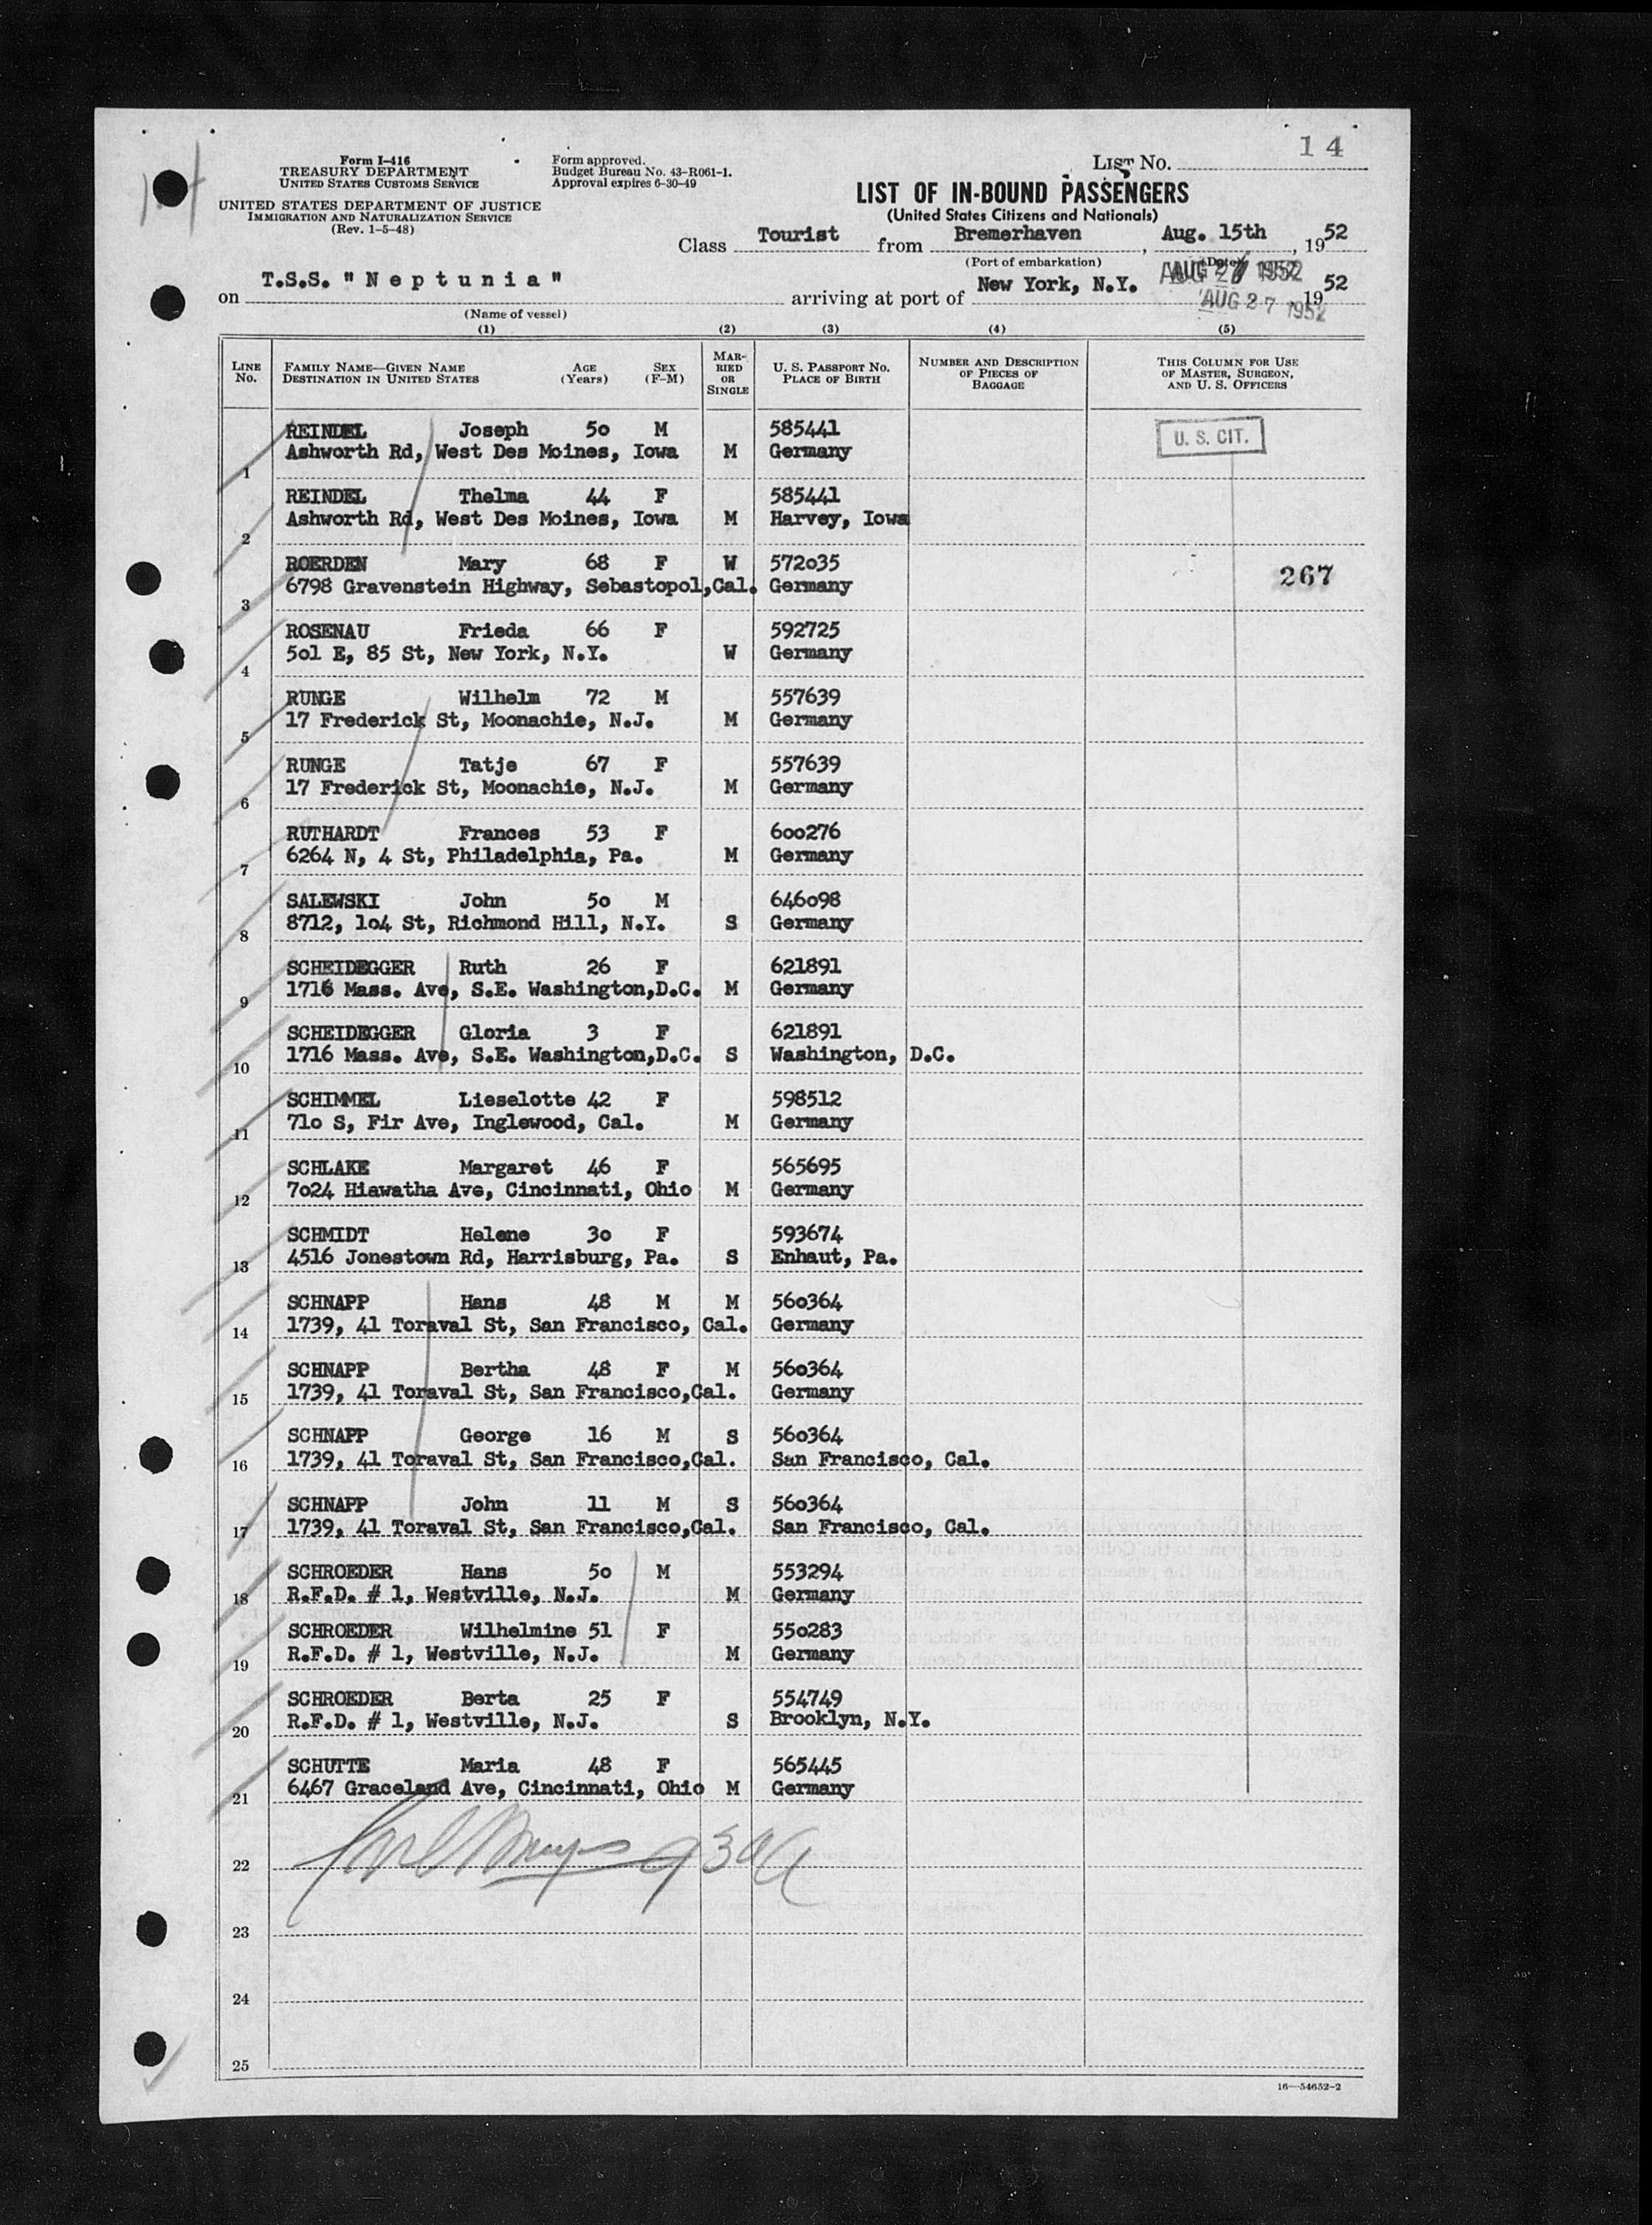 14
Form I-416
TREASURY DEPARTMENT
UNITED STATES CUSTOMS SERVICE
UNITED STATES DEPARTMENT OF JUSTICE
IMMIGRATION AND NATURALIZATION SERVICE
(Rev. 1-5-48)
Form approved.
Budget Bureau No. 43-R061-1.
Approval expires 6-30-49
LIST NO.
LIST OF IN-BOUND PASSENGERS
(United States Citizens and Nationals)
Class Tourist from Bremerhaven, Aug. 15th, 1952
(Port of embarkation) (Date)
on T.S.S. "Neptunia" arriving at port of New York, N.Y. AUG 27 1952, 1952
(Name of vessel)
(1) (2) (3) (4) (5)
LINE NO.
FAMILY NAME—GIVEN NAME
DESTINATION IN UNITED STATES
AGE (Years)
SEX (F-M)
MARRIED OR SINGLE
U. S. PASSPORT NO.
PLACE OF BIRTH
NUMBER AND DESCRIPTION OF PIECES OF BAGGAGE
THIS COLUMN FOR USE OF MASTER, SURGEON, AND U. S. OFFICERS
REINDEL Joseph 50 M 585441 U. S. CIT.
1 Ashworth Rd, West Des Moines, Iowa M Germany
REINDEL Thelma 44 F 585441
2 Ashworth Rd, West Des Moines, Iowa M Harvey, Iowa
ROERDEN Mary 68 F W 572035 267
3 6798 Gravenstein Highway, Sebastopol,Cal. Germany
ROSENAU Frieda 66 F 592725
4 5o1 E, 85 St, New York, N.Y. W Germany
RUNGE Wilhelm 72 M 557639
5 17 Frederick St, Moonachie, N.J. M Germany
RUNGE Tatje 67 F 557639
6 17 Frederick St, Moonachie, N.J. M Germany
RUTHARDT Frances 53 F 600276
7 6264 N, 4 St, Philadelphia, Pa. M Germany
SALEWSKI John 50 M 646098
8 8712, 1o4 St, Richmond Hill, N.Y. S Germany
SCHEIDEGGER Ruth 26 F 621891
9 1716 Mass. Ave, S.E. Washington,D.C. M Germany
SCHEIDEGGER Gloria 3 F 621891
10 1716 Mass. Ave, S.E. Washington,D.C. S Washington, D.C.
SCHIMMEL Lieselotte 42 F 598512
11 71o S, Fir Ave, Inglewood, Cal. M Germany
SCHLAKE Margaret 46 F 565695
12 7o24 Hiawatha Ave, Cincinnati, Ohio M Germany
SCHMIDT Helene 30 F 593674
13 4516 Jonestown Rd, Harrisburg, Pa. S Enhaut, Pa.
SCHNAPP Hans 48 M M 560364
14 1739, 41 Toraval St, San Francisco, Cal. Germany
SCHNAPP Bertha 48 F M 560364
15 1739, 41 Toraval St, San Francisco,Cal. Germany
SCHNAPP George 16 M S 560364
16 1739, 41 Toraval St, San Francisco,Cal. San Francisco, Cal.
SCHNAPP John 11 M S 560364
17 1739, 41 Toraval St, San Francisco,Cal. San Francisco, Cal.
SCHROEDER Hans 50 M 553294
18 R.F.D. # 1, Westville, N.J. M Germany
SCHROEDER Wilhelmine 51 F 550283
19 R.F.D. # 1, Westville, N.J. M Germany
SCHROEDER Berta 25 F 554749
20 R.F.D. # 1, Westville, N.J. S Brooklyn, N.Y.
SCHUTTE Maria 48 F 565445
21 6467 Graceland Ave, Cincinnati, Ohio M Germany
22
23
24
25
16—54652-2